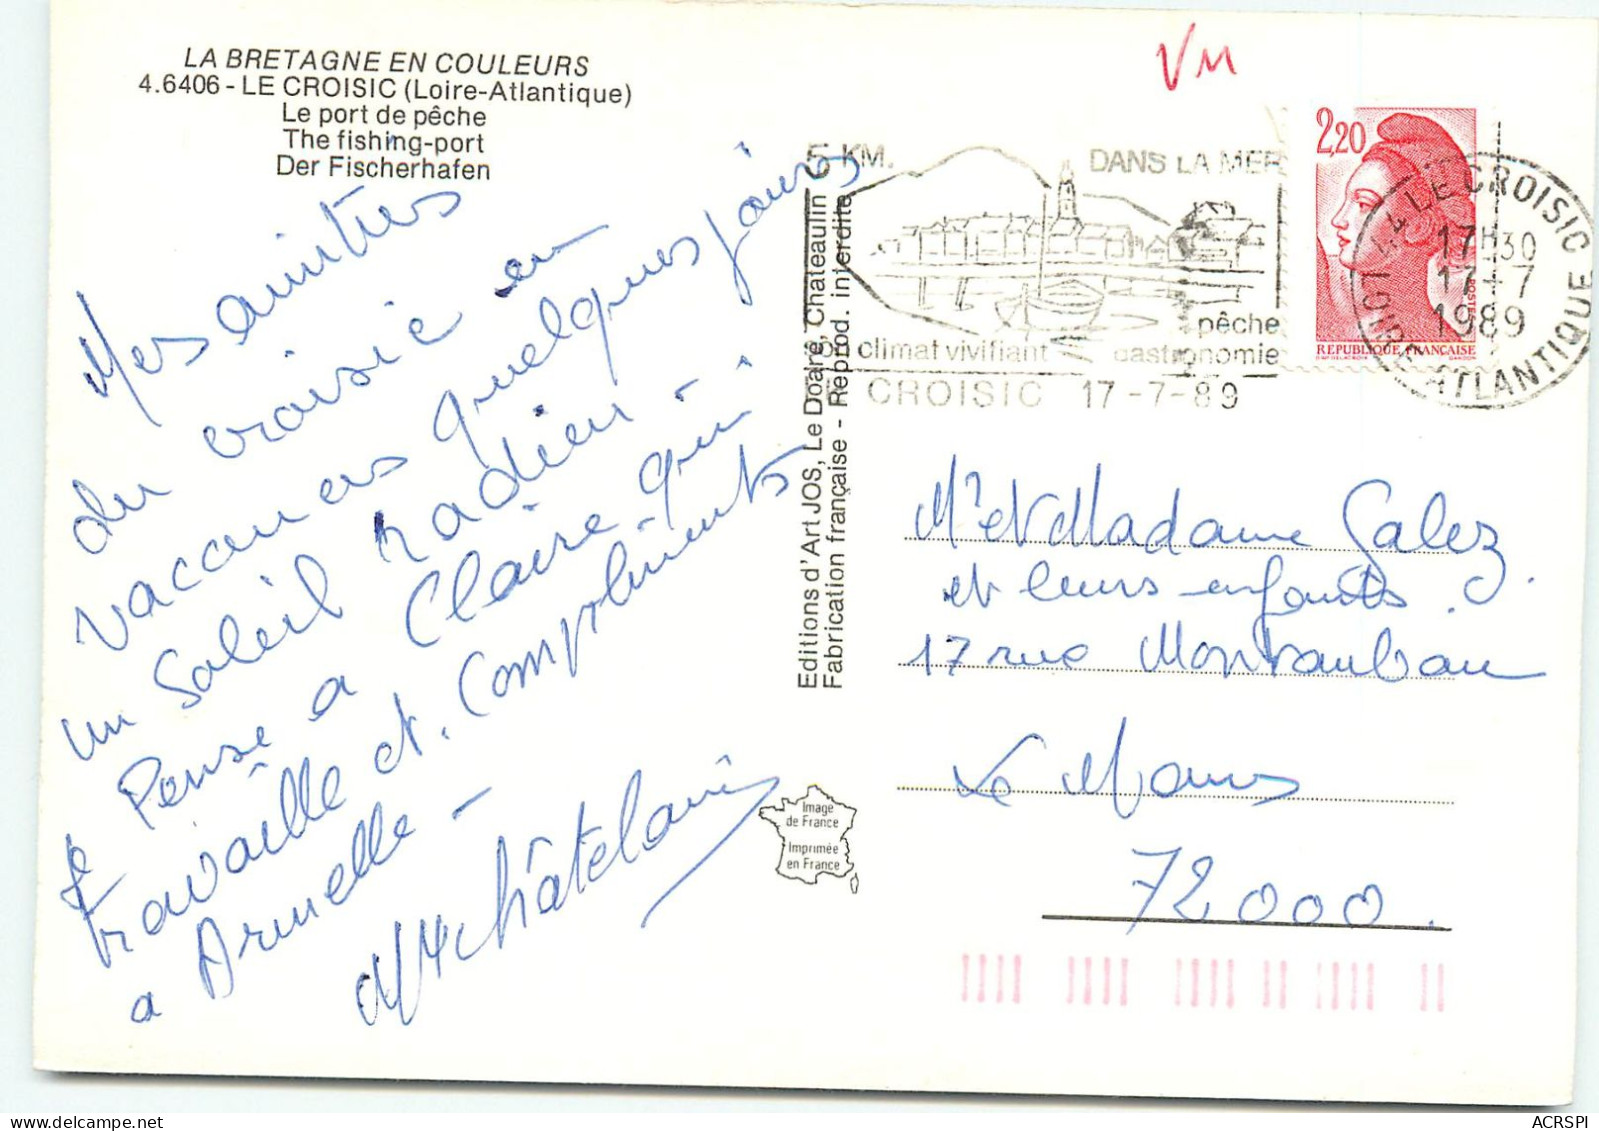 LA BRETAGNE EN COULEURS
4.6406 - LE CROISIC (Loire-Atlantique)
Le port de pêche
The fishing-port
Der Fischerhafen
Mes amitiés
du croisic en
vacances quelques jours
un Soleil radieu -
Pense a Claire qui
travaille et. Compliments
a Armelle -
Châtelain
Editions d'Art JOS, Le Doaré, Chateaulin
Fabrication française - Reprod. interdite
Image
de France
Imprimée
en France
VM
5 KM. DANS LA MER
pêche
climat vivifiant gastronomie
CROISIC 17-7-89
2,20
POSTES
REPUBLIQUE FRANÇAISE
LE CROISIC
17H30
17-7
1989
LOIRE ATLANTIQUE
Mr et Madame Galez
et leurs enfants.
17 rue Montauban
Le Mans
72000.
ACRSPI